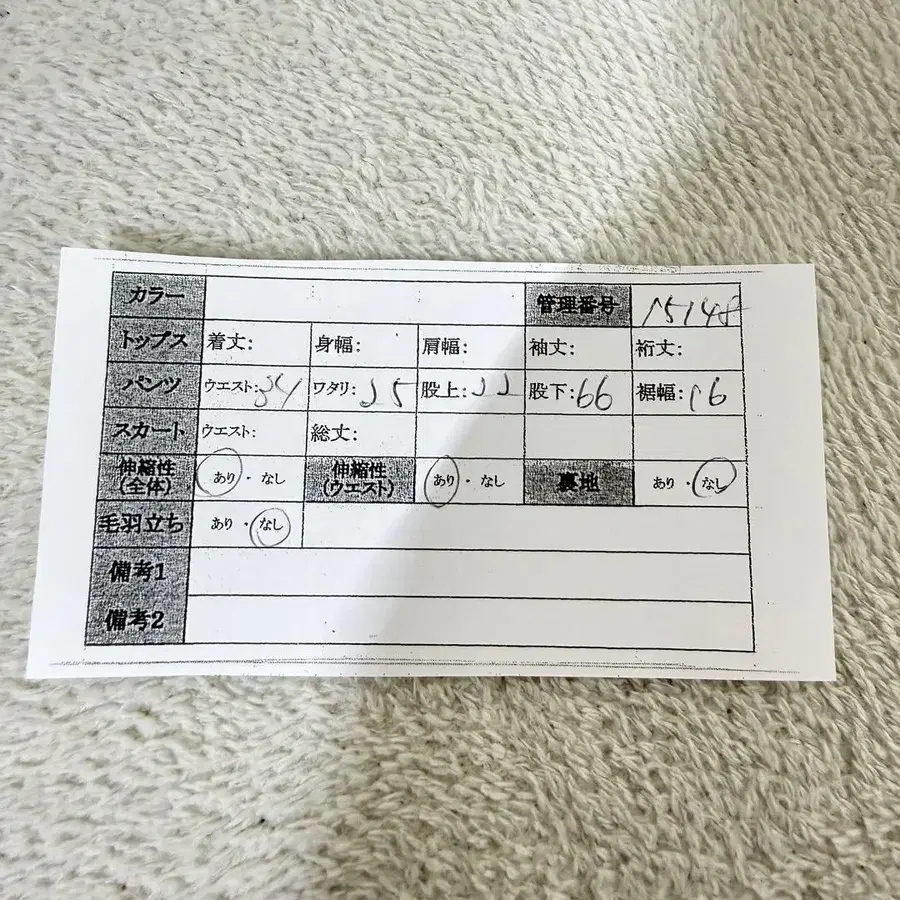 カラー 管理番号 15148
トップス 着丈: 身幅: 肩幅: 袖丈: 裄丈:
パンツ ウエスト: ワタリ: 25 股上: 22 股下: 66 裾幅: 16
スカート ウエスト: 総丈:
伸縮性 (全体) あり・なし 伸縮性 (ウエスト) あり・なし 裏地 あり・なし
毛羽立ち あり・なし
備考1
備考2